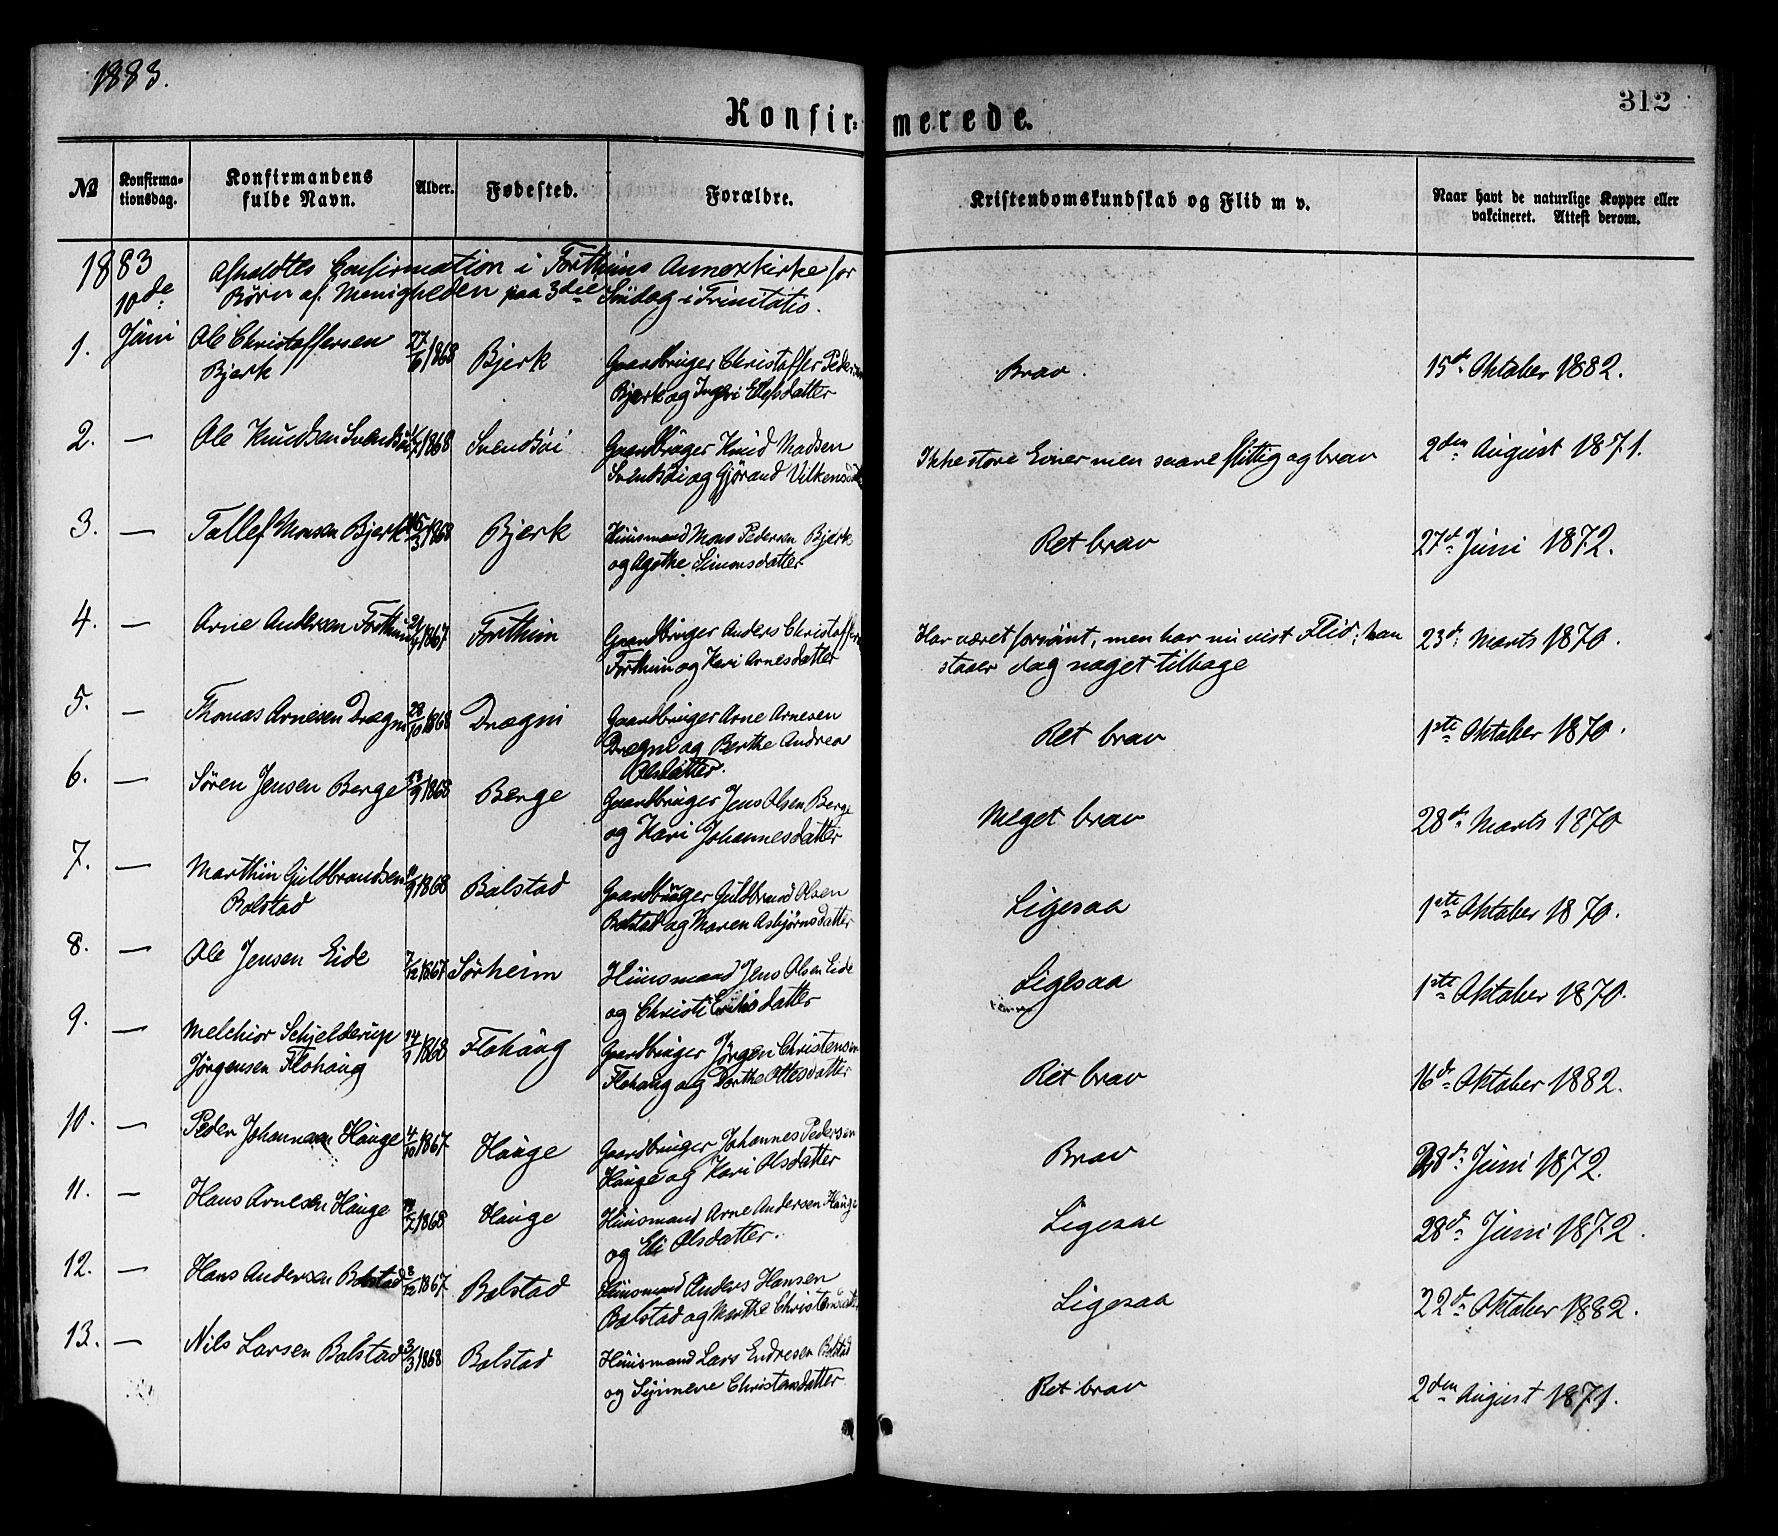 1883.
312
Konfir= merede.
№
Konfirma-
tionsdag.
Konfirmandens
fulde Navn.
Alder.
Fødested.
Forældre.
Kristendomskundskab og Flid m v.
Naar havt de naturlige Kopper eller
vakcineret. Attest derom.
1883 Afholdtes Confirmation i Forthuns Annexkirke for
10de Børn af Menigheden paa 3die Søndag i Trinitatis.
1. Juni Ole Christoffersen 1868 Bjerk Gaardbruger Christoffer Pedersen Brav. 15d Oktober 1882.
Bjerk Bjerk og Ingri datter
2. — Ole Knudsen Svensøi 1868 Svensøi Gaardbruger Knud Madsen Ikke store Evner men saare flittig og brav 2den August 1871.
Svensøi og Gjørand
3. — Tollef Monsen Bjerk 1868 Bjerk Huusmand Mons Pedersen Bjerk Ret brav 27d Juni 1872.
og Agathe Simonsdatter
4. — Arne Andersen Forthun 1867 Forthun Gaardbruger Anders Christoffersen Har været forsømt, men har nu vist Flid; han 23d Marts 1870.
Forthun og Kari Arnesdatter staaer dog noget tilbage
5. — Thomas Arnesen Drægni 28/10 1868 Drægni Gaardbruger Arne Arnesen Ret brav 1ste Oktober 1870.
Drægni og Berthe Andrea
Olsdatter.
6. — Søren Jensen Berge 1868 Berge Gaardbruger Jens Olsen Berge Meget brav 28d Marts 1870
og Kari Johannesdatter
7. — Marthin Guldbrandsen 1868 Bolstad Gaardbruger Guldbrand Olsen Ligesaa 1ste Oktober 1870.
Bolstad Bolstad og Maren Asbjørnsdatter
8. — Ole Jensen Eide 7/12 1867 Sørheim Huusmand Jens Olsen Eide Ligesaa 1ste Oktober 1870.
og Christi datter
9. — Melchior Schjelderup 1868 Flohaug Gaardbruger Jørgen Christensen Ret brav 16d Oktober 1882.
Jørgensen Flohaug Flohaug og Dorthe Ottesdatter
10. — Peder Johannesen Hauge 4/10 1867 Hauge Gaardbruger Johannes Pedersen Brav 28d Juni 1872.
Hauge og Kari Olsdatter
11. — Hans Arnesen Hauge 1868 Hauge Huusmand Arne Andersen Hauge Ligesaa 28d Juni 1872.
og Eli Olsdatter.
12. — Hans Andersen Bolstad 8/12 1867 Bolstad Huusmand Anders Hansen Ligesaa 22d Oktober 1882.
Bolstad og Marthe Christensdatter
13. — Nils Larsen Bolstad 3/3 1868 Bolstad Huusmand Lars Endresen Bolstad Ret brav 2den August 1871.
og Synneve Christensdatter